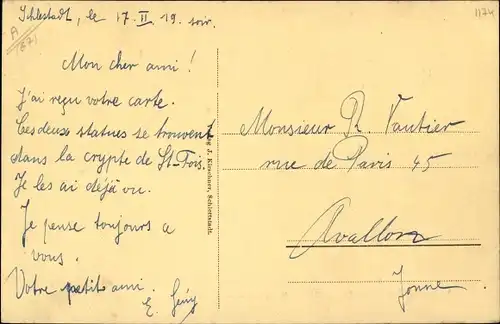 Schlestadt, le 17-II-19. soir.
A
1174
Mon cher ami!
J'ai reçu votre carte.
Les deux statues se trouvent
dans la crypte de St-Fois.
Je les ai déjà vu.
Je pense toujours a
vous.
Votre petit ami.
E. Gény
Verlag J. Kirschner, Schlettstadt.
Monsieur R. Vautier
rue de Paris 45
Avallon
Yonne.